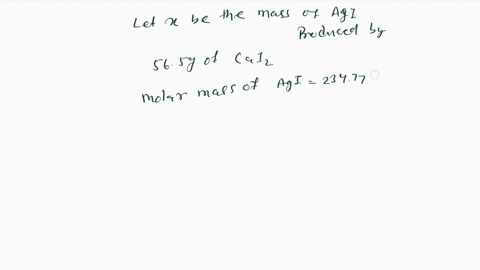 Let x be the mass of AgI
Produced by
56.5g of CaI2
molar mass of AgI = 234.77